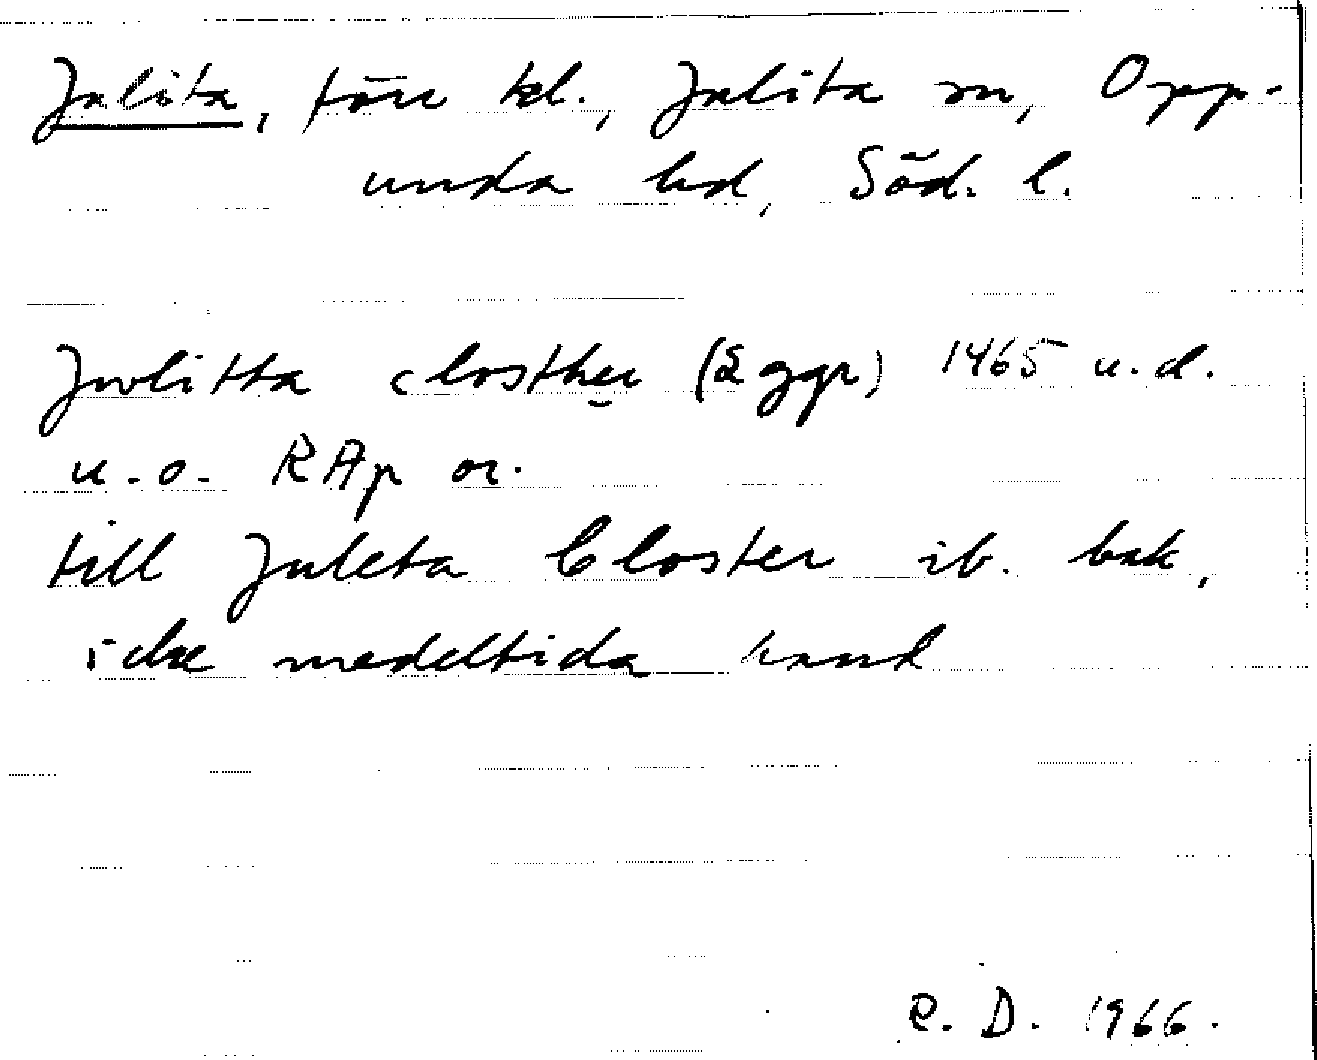 Julita, förr kl., Julita sn, Opp-
unda hd, Söd. l.
Jwlitta closther (2 ggr) 1465 u.d.
u.o. RAp or.
till Juleta Closter ib. bak,
icke medeltida hand
R. D. 1966.